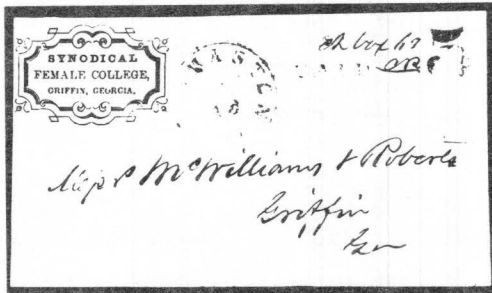 SYNODICAL
FEMALE COLLEGE,
GRIFFIN, GEORGIA.
Ch box 67
Messrs McWilliams & Roberts
Griffin
Ga